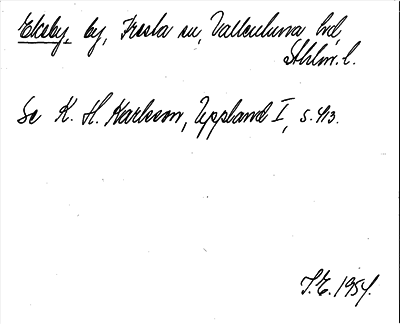 Ekeby, by, Fresta sn, Vallentuna hd,
Sthlm. l.
Se K. H. Karlsson, Uppland I, s. 413.
J.E. 1954.